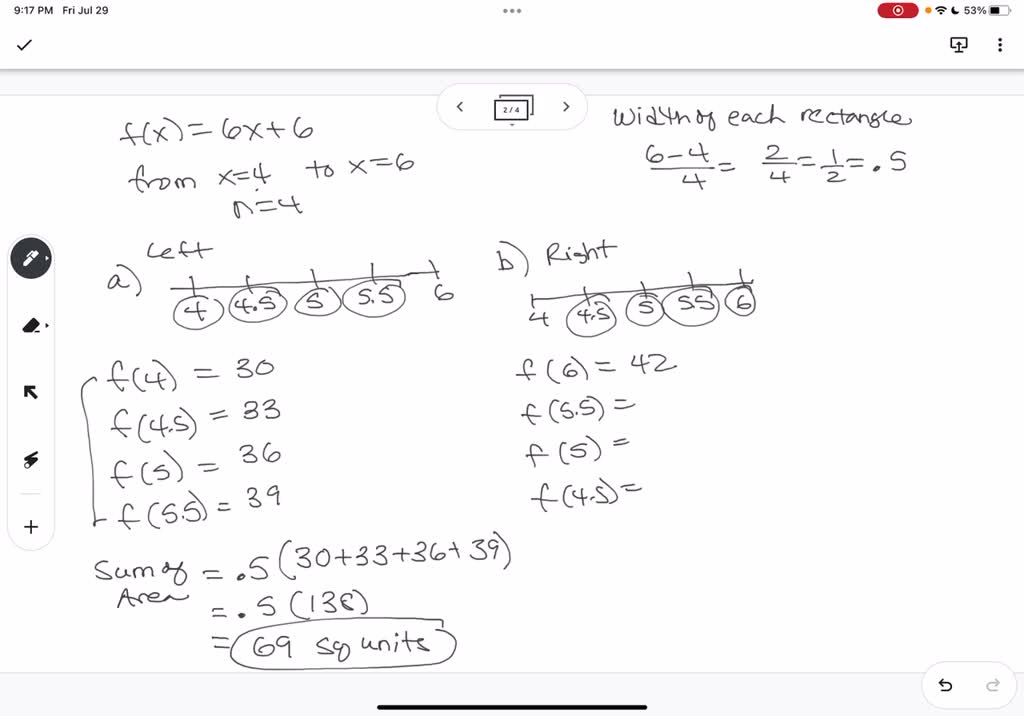 9:17 PM Fri Jul 29
53%
2/4
f(x) = 6x+6
from x=4 to x=6
n=4
Width of each rectangle
6-4/4 = 2/4 = 1/2 = .5
a) Left
4 4.5 5 5.5 6
f(4) = 30
f(4.5) = 33
f(5) = 36
f(5.5) = 39
Sum of Area = .5(30+33+36+39)
= .5(138)
= 69 sq units
b) Right
4 4.5 5 5.5 6
f(6) = 42
f(5.5) =
f(5) =
f(4.5) =